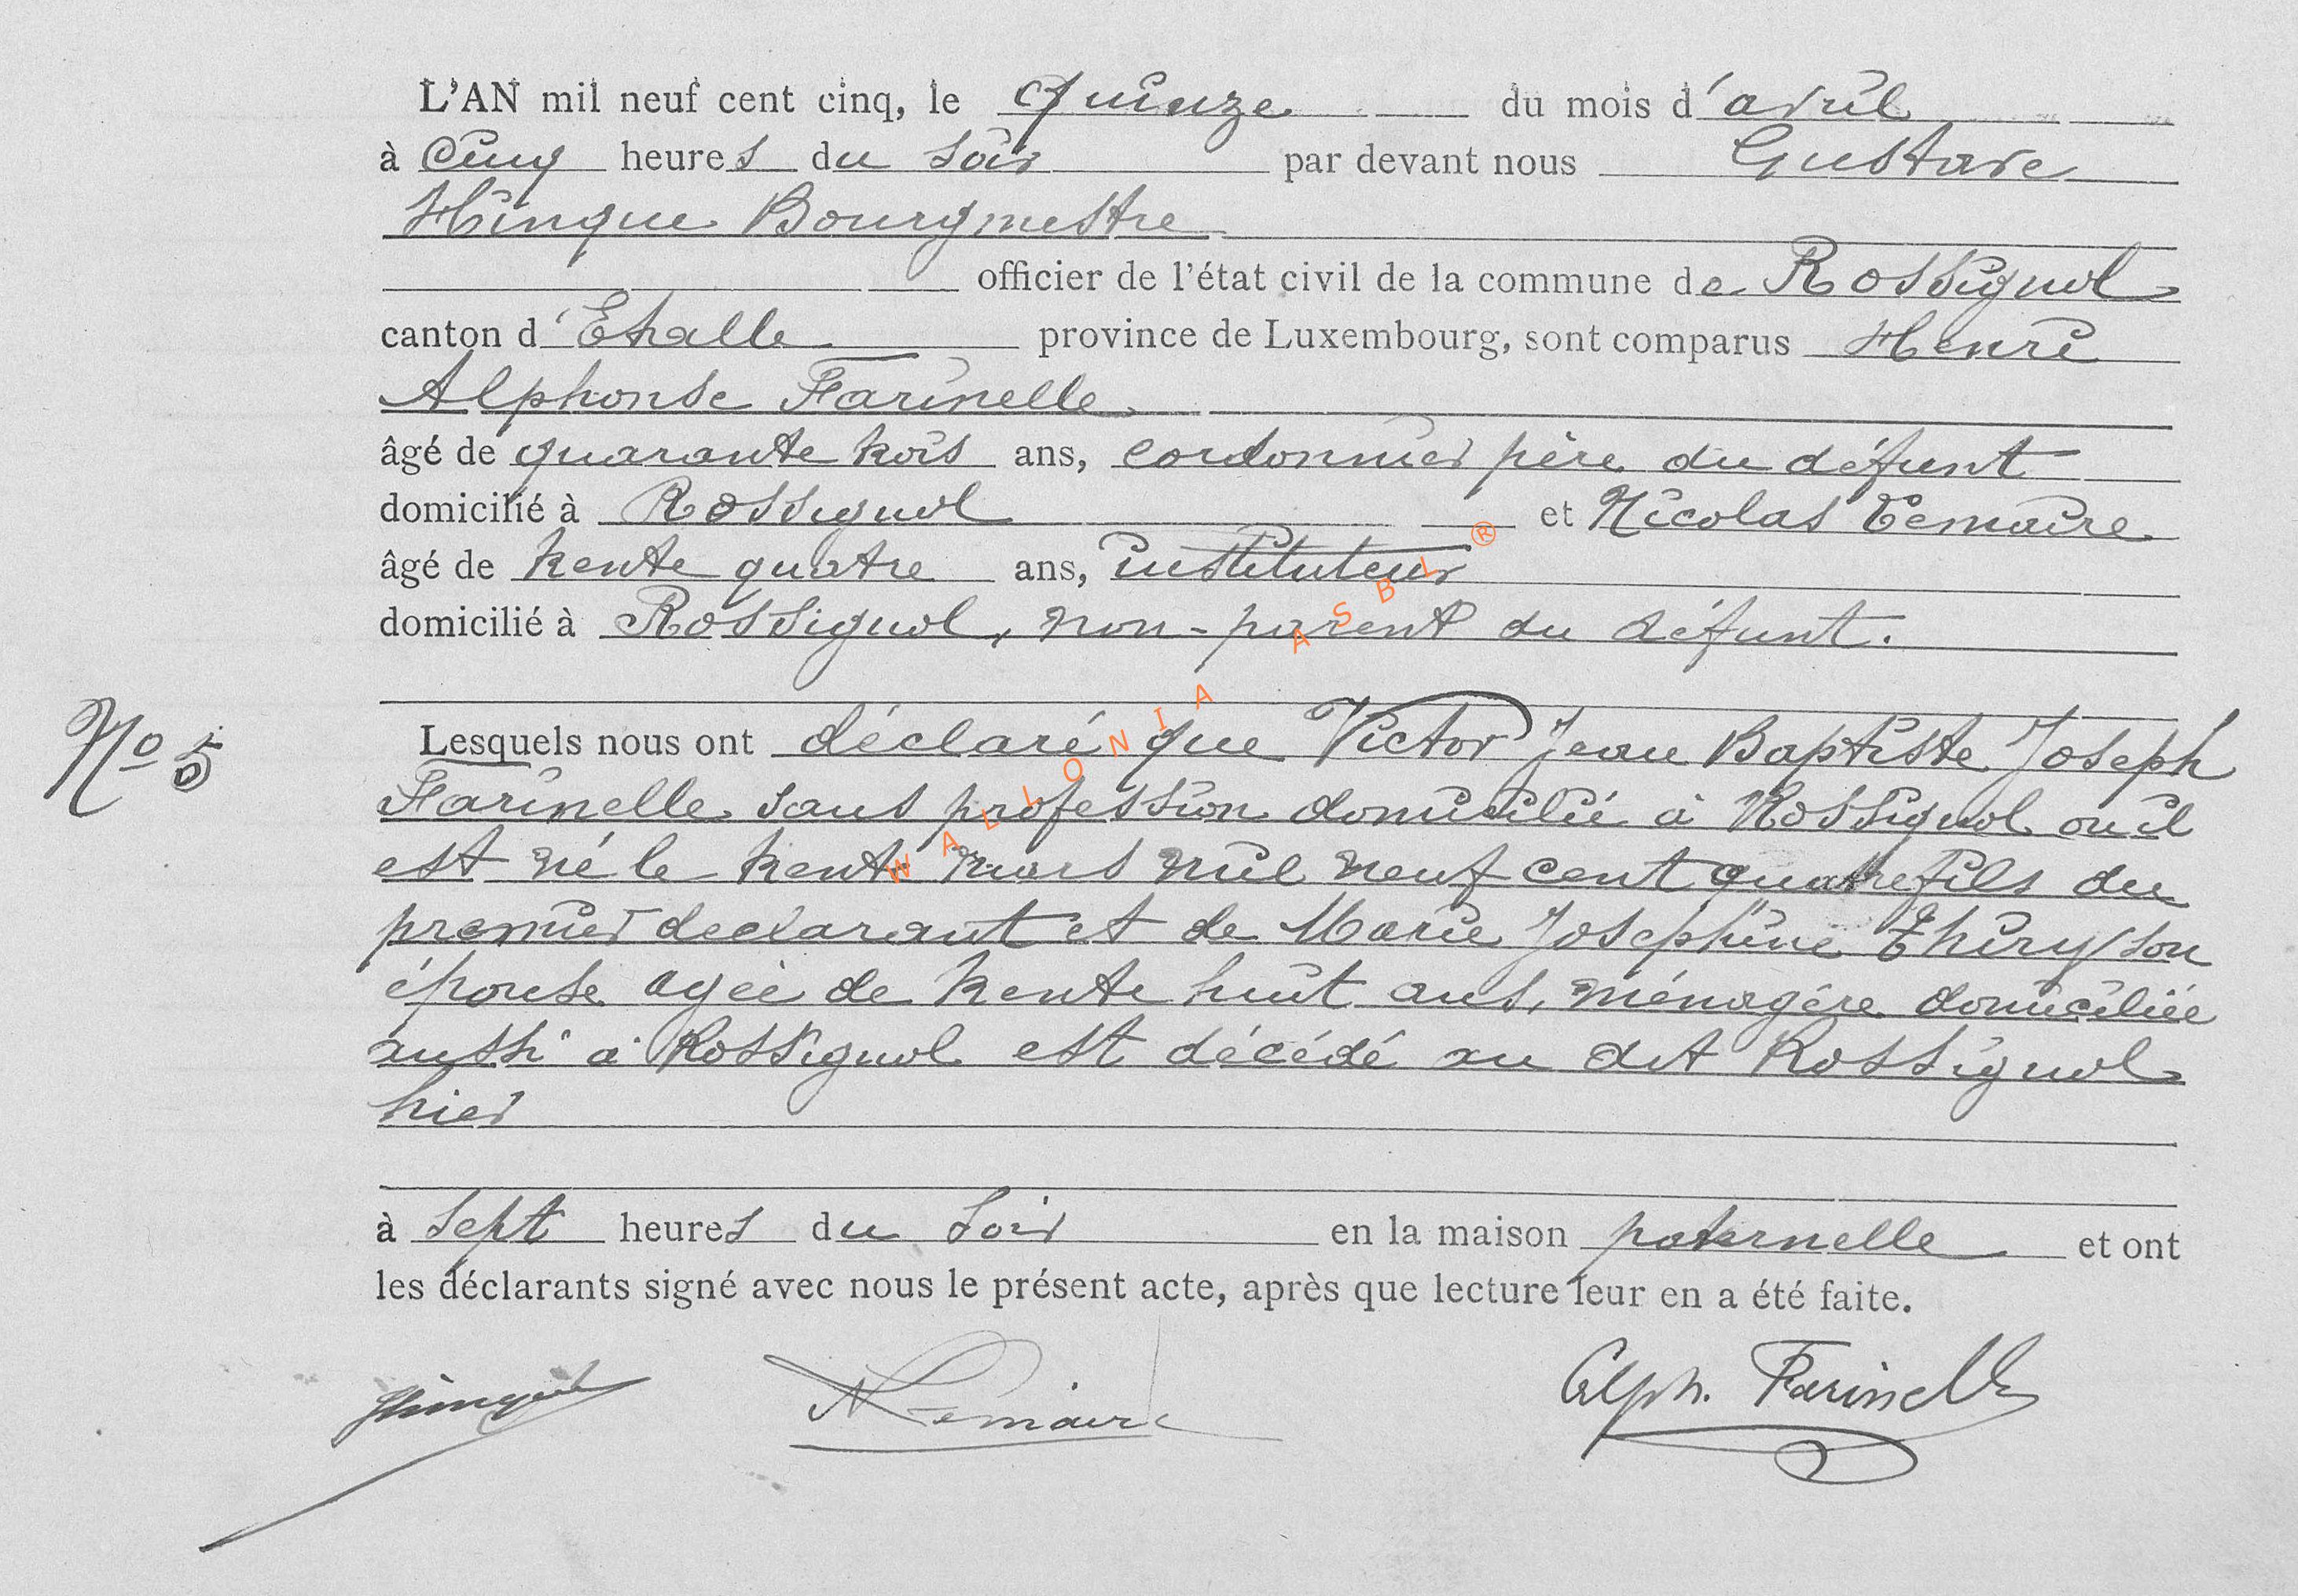 L'AN mil neuf cent cinq, le quinze du mois d'avril
à cinq heures du soir par devant nous Gustave
Hinque Bourgmestre
officier de l'état civil de la commune de Rossignol
canton d'Etalle province de Luxembourg, sont comparus Henri
Alphonse Farinelle
âgé de quarante trois ans, cordonnier père du défunt
domicilié à Rossignol et Nicolas Lemaire
âgé de trente quatre ans, instituteur
domicilié à Rossignol, non-parent du défunt.
No 5
Lesquels nous ont déclaré que Victor Jean Baptiste Joseph
Farinelle sans profession domicilié à Rossignol où il
est né le trente mars mil neuf cent quatre fils du
premier declarant et de Marie Josephine Thiry son
épouse agée de trente huit ans, ménagère domiciliée
aussi à Rossignol est décédé au dit Rossignol
hier
à sept heures du soir en la maison paternelle et ont
les déclarants signé avec nous le présent acte, après que lecture leur en a été faite.
Hinque NLemaire Alph. Farinelle
WALLONIA ASBL ®